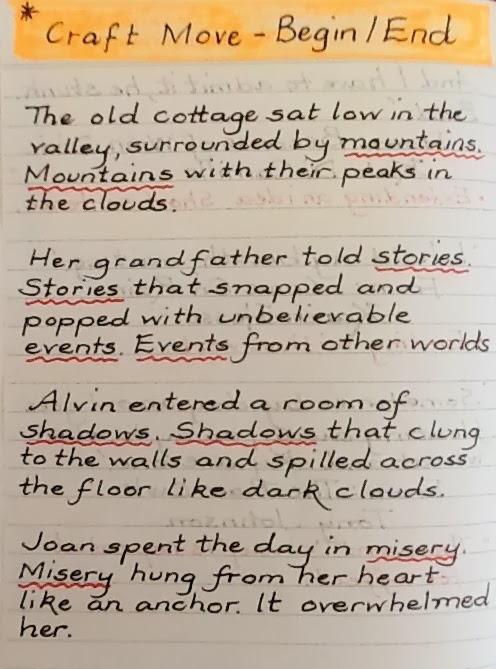 * Craft Move - Begin/End
The old cottage sat low in the
valley, surrounded by mountains.
Mountains with their peaks in
the clouds.
Her grandfather told stories.
Stories that snapped and
popped with unbelievable
events. Events from other worlds
Alvin entered a room of
shadows. Shadows that clung
to the walls and spilled across
the floor like dark clouds.
Joan spent the day in misery.
Misery hung from her heart
like an anchor. It overwhelmed
her.